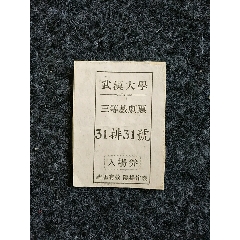 武漢大學
三等戲劇票
31排31號
入場券